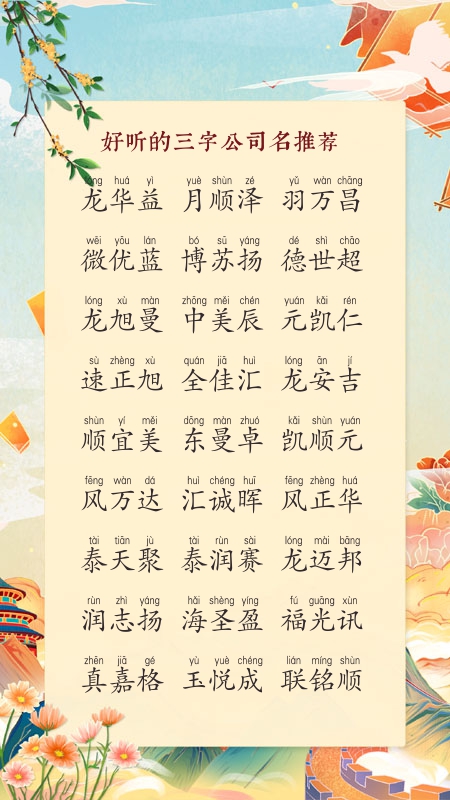 好听的三字公司名推荐
lóng huá yì yuè shùn zé yǔ wàn chāng
龙华益 月顺泽 羽万昌
wēi yōu lán bó sū yáng dé shì chāo
微优蓝 博苏扬 德世超
lóng xù màn zhōng měi chén yuán kǎi rén
龙旭曼 中美辰 元凯仁
sù zhèng xù quán jiā huì lóng ān jí
速正旭 全佳汇 龙安吉
shùn yí měi dōng màn zhuó kǎi shùn yuán
顺宜美 东曼卓 凯顺元
fēng wàn dá huì chéng huī fēng zhèng huá
风万达 汇诚晖 风正华
tài tiān jù tài rùn sài lóng mài bāng
泰天聚 泰润赛 龙迈邦
rùn zhì yáng hǎi shèng yíng fú guāng xùn
润志扬 海圣盈 福光讯
zhēn jiā gé yù yuè chéng lián míng shùn
真嘉格 玉悦成 联铭顺